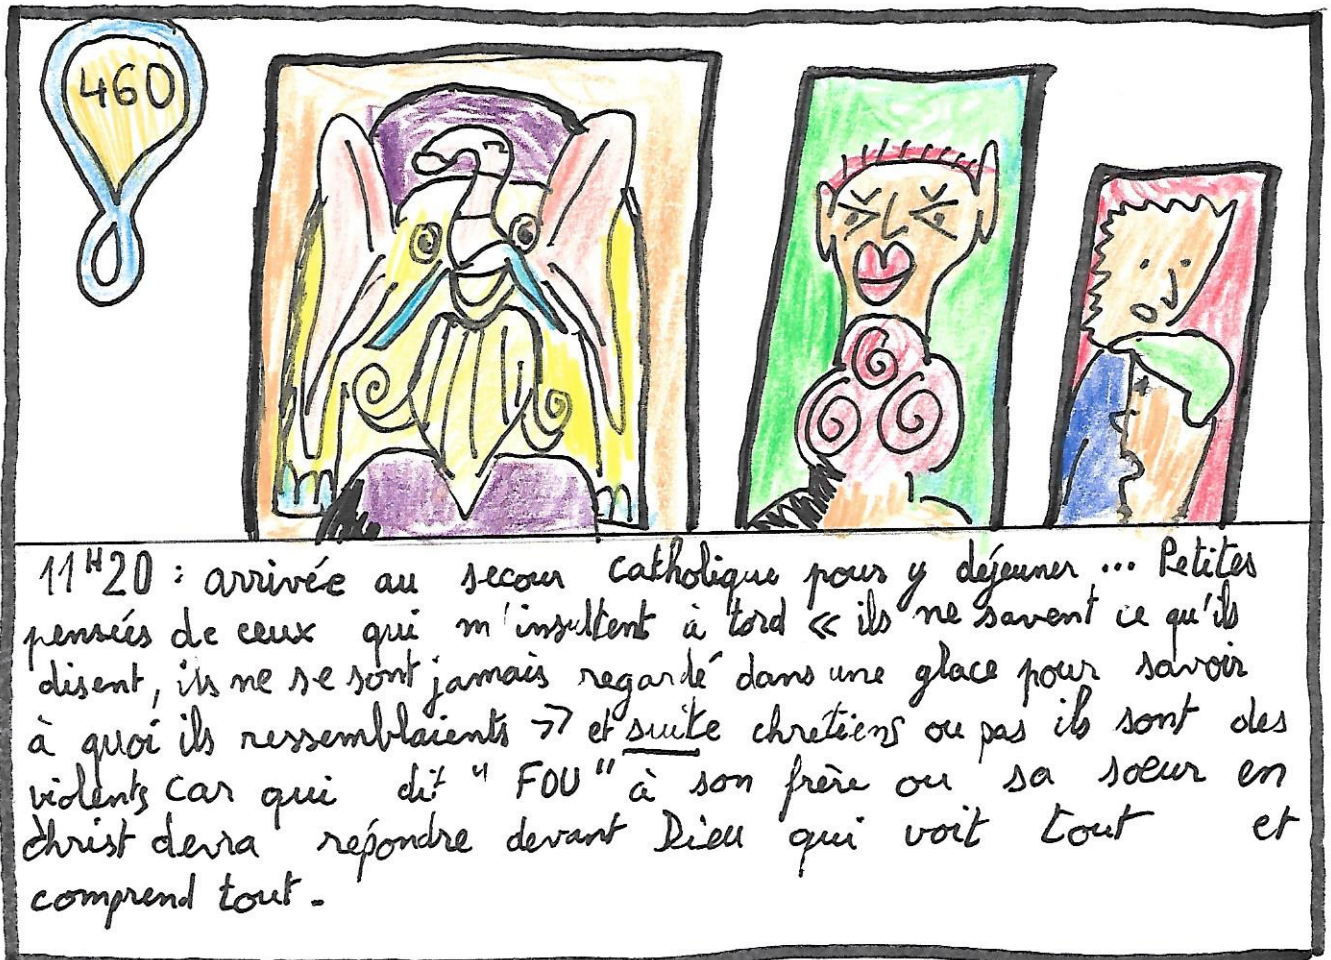 460
11H20 : arrivée au secour catholique pour y déjeuner ... Petites
pensées de ceux qui m'insultent à tord « ils ne savent ce qu'ils
disent, ils ne se sont jamais regardé dans une glace pour savoir
à quoi ils ressemblaients » et suite chrétiens ou pas ils sont des
violents car qui dit "FOU" à son frère ou sa soeur en
christ devra répondre devant Dieu qui voit tout et
comprend tout.